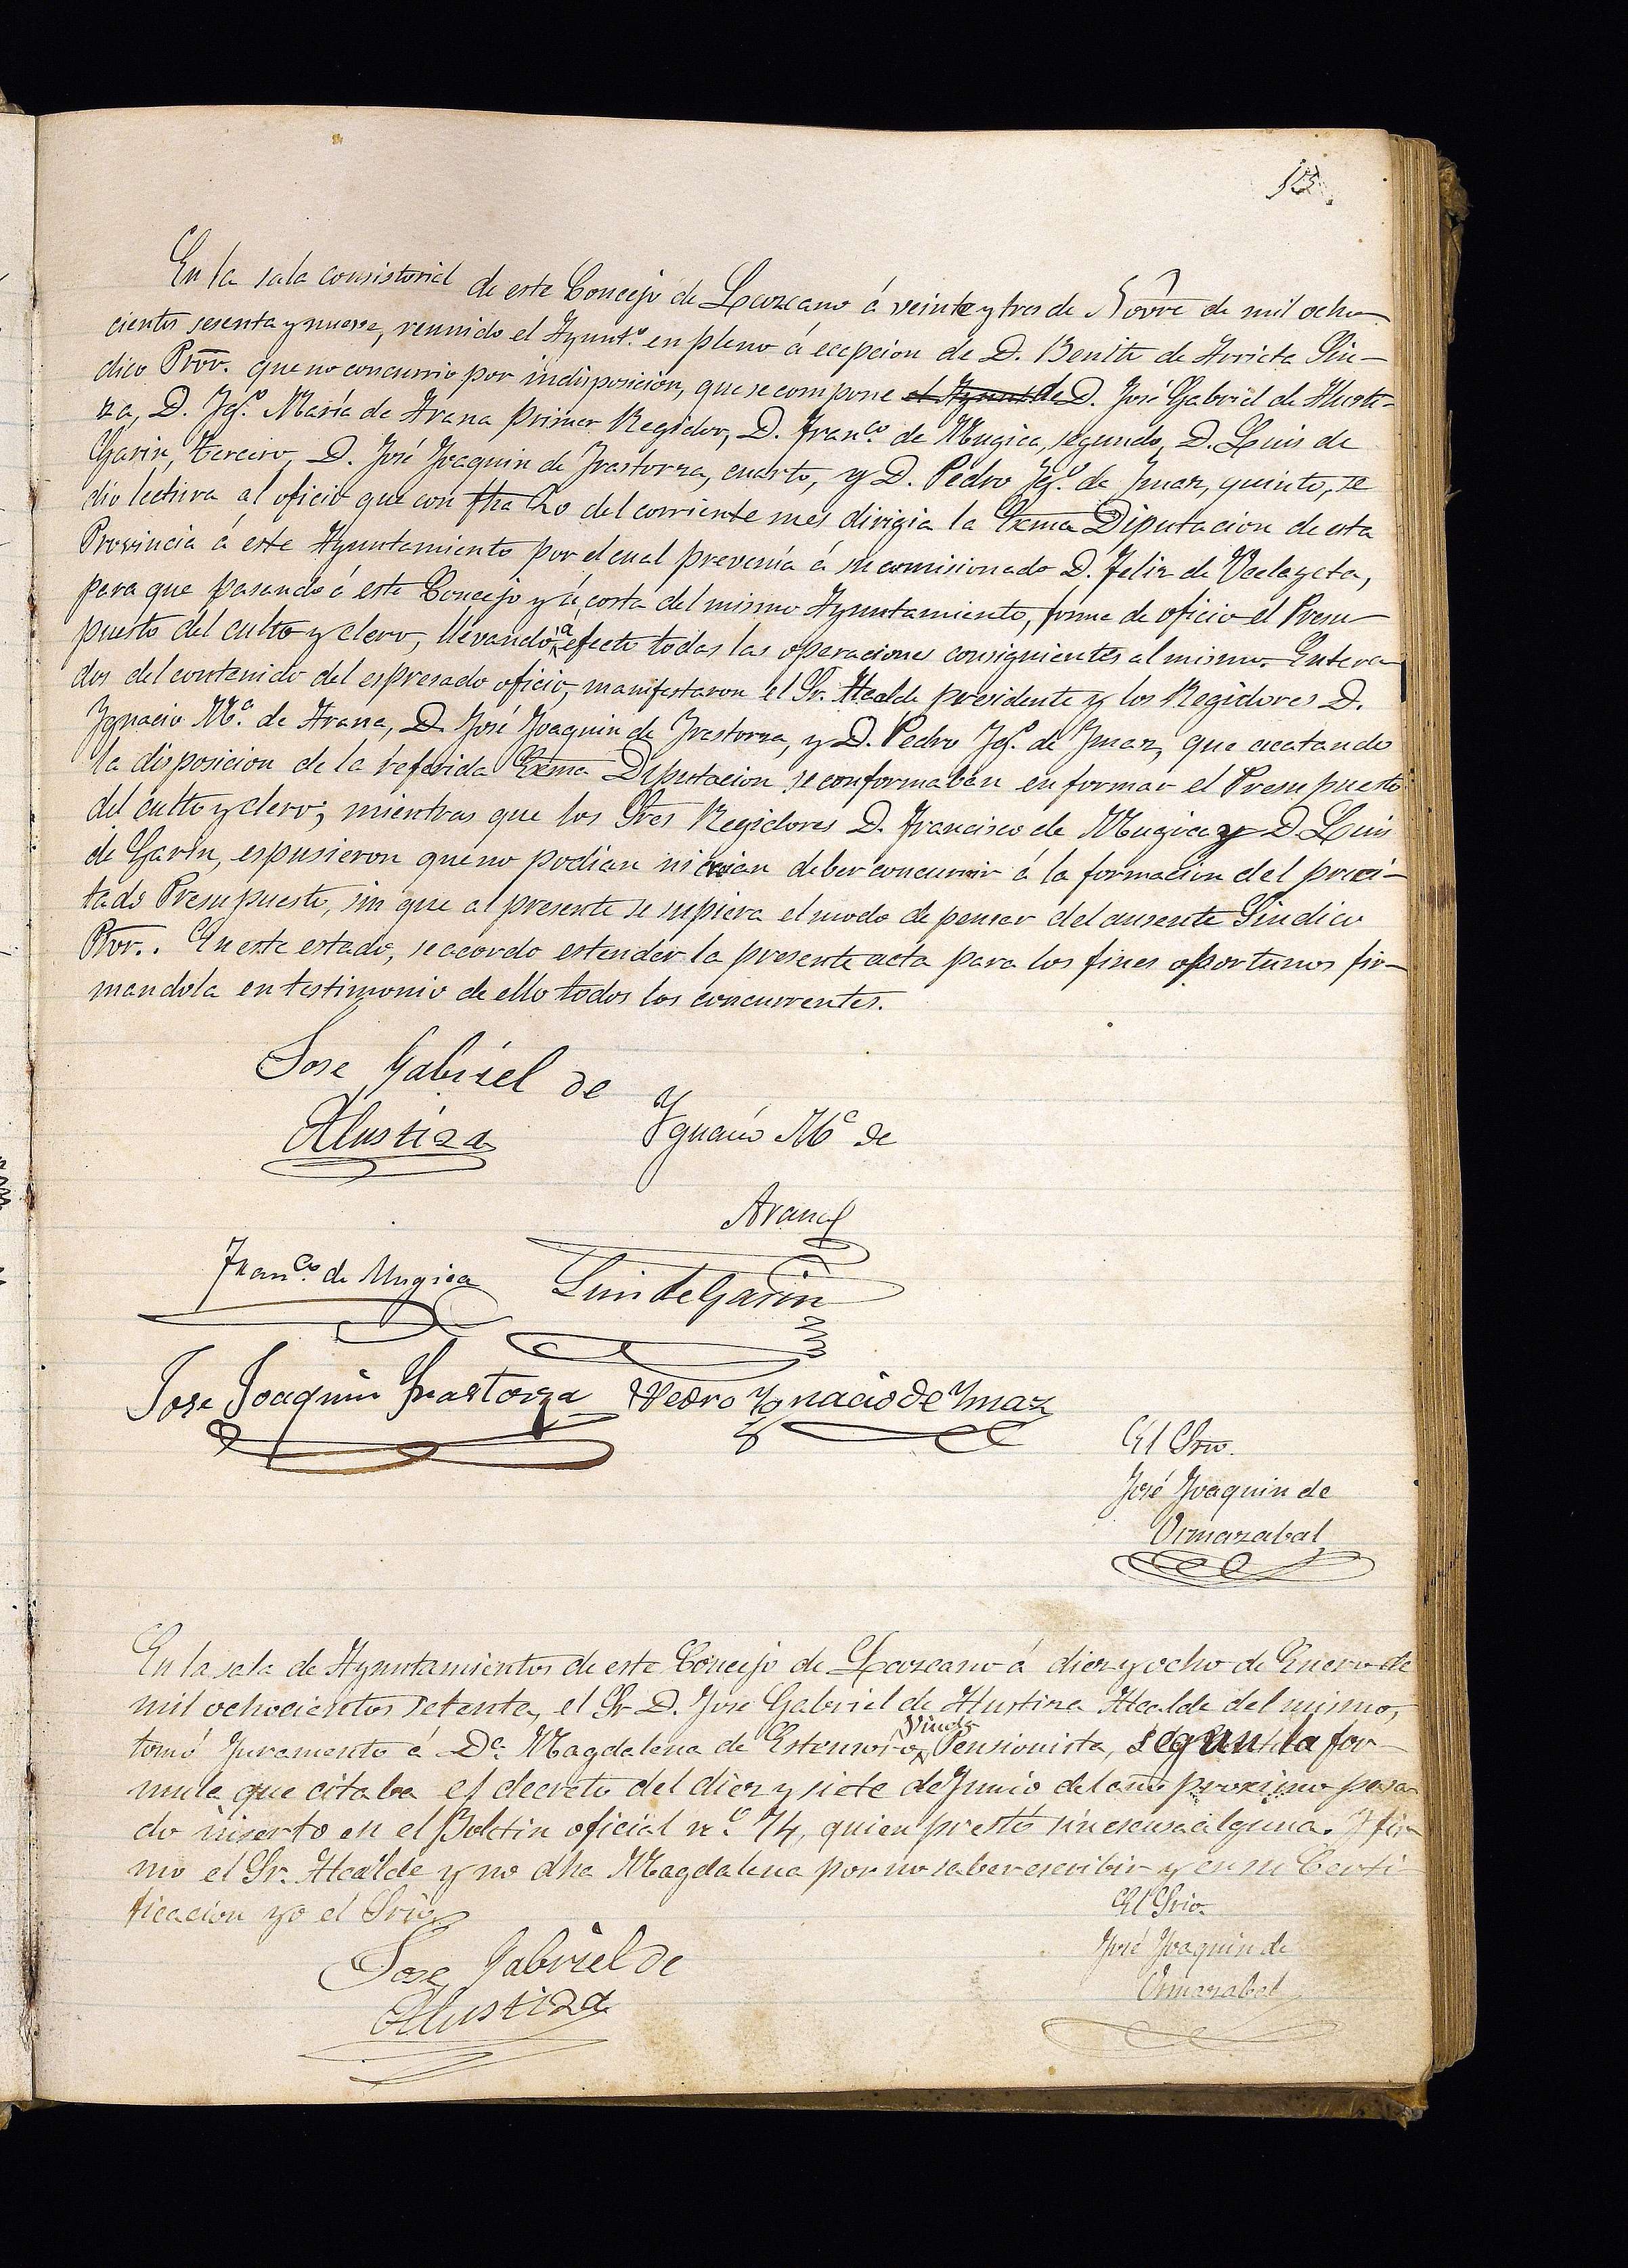 En la sala consistorial de este Concejo de Lazcano á veinte y tres de Novre de mil ocho
cientos sesenta y nueve, reunido el Ayunt.º en pleno á ecepcion de D. Benito de Arrieta Sin-
dico Pror. que no concurrio por indisposicion, que se compone el Ayunt. de D. José Gabriel de Alusti-
za, D. Ig.º María de Arana primer Regidor, D. Fran.co de Mugica, segundo, D. Luis de
Garin, tercero, D. José Joaquin de Yrastorza, cuarto, y D. Pedro Ig.º de Ymaz, quinto, se
dio lectura al oficio que con fha 20 del corriente mes dirigia la Exma Diputacion de esta
Provincia á este Ayuntamiento por el cual prevenía á su comisionado D. Felix de
para que pasando á este Concejo y á costa del mismo Ayuntamiento, forme de oficio el Presu-
puesto del culto y clero, llevando á efecto todas las operaciones consiguientes al mismo. Entera-
dos del contenido del espresado oficio, manifestaron el Sr. Alcalde presidente y los Regidores D.
Ygnacio M.ª de Arana, D. José Joaquin de Yrastorza, y D. Pedro Ig.º de Ymaz, que acatando
la disposicion de la referida Exma Diputacion se conformaban en formar el Presupuesto
del culto y clero; mientras que los Sres Regidores D. Francisco de Mugica y D. Luis
de Garin, espusieron que no podian ni creian deber concurrir á la formacion del preci-
tado Presupuesto, sin que al presente se supiera el modo de pensar del ausente Sindico
Pror.. En este estado, se acordo estender la presente acta para los fines oportunos fir-
mandola en testimonio de ello todos los concurrentes.
Jose Gabriel de
Alustiza
Ygnacio M.ª de
Arana
Fran.co de Mugica
Luis de Garin
Jose Joaquin Yrastorza
Pedro Ygnacio de Ymaz
El Srio.
José Joaquin de
Ormazabal
En la sala de Ayuntamientos de este Concejo de Lazcano á diez y ocho de Enero de
mil ochocientos setenta, el Sr. D. Jose Gabriel de Alustiza Alcalde del mismo,
tomó juramento á D.ª Magdalena de Estensoro, viuda Pensionista, segun la for-
mula que citaba el decreto del diez y siete de Junio del año proximo pasa-
do inserto en el Boletin oficial n.º 74, quien presto sin escusa alguna. Y fir-
mo el Sr. Alcalde y no dha Magdalena por no saber escribir y en su Certi-
ficacion yo el Srio.
Jose Gabriel de
Alustiza
El Srio.
José Joaquin de
Ormazabal